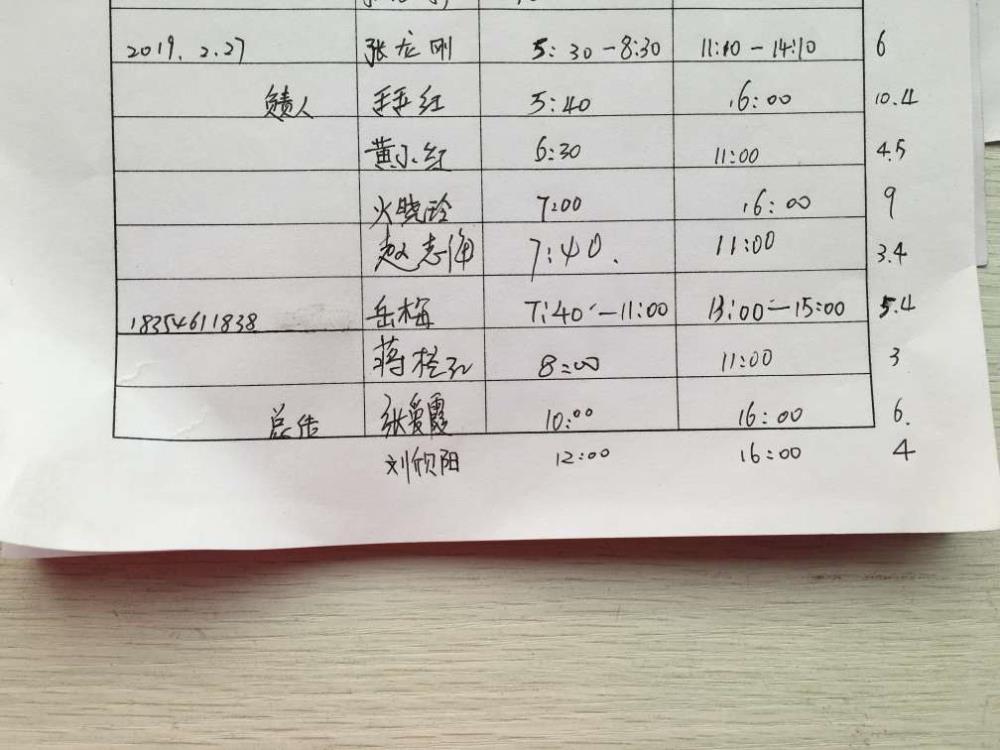 2019. 2.27 张龙刚 5:30-8:30 11:10-14:10 6
负责人 王玉红 5:40 16:00 10.4
黄小红 6:30 11:00 4.5
火晓玲 7:00 16:00 9
赵志海 7:40. 11:00 3.4
18354611838 岳梅 7:40-11:00 13:00-15:00 5.4
蒋 8:00 11:00 3
总结 张爱霞 10:00 16:00 6.
刘欣阳 12:00 16:00 4